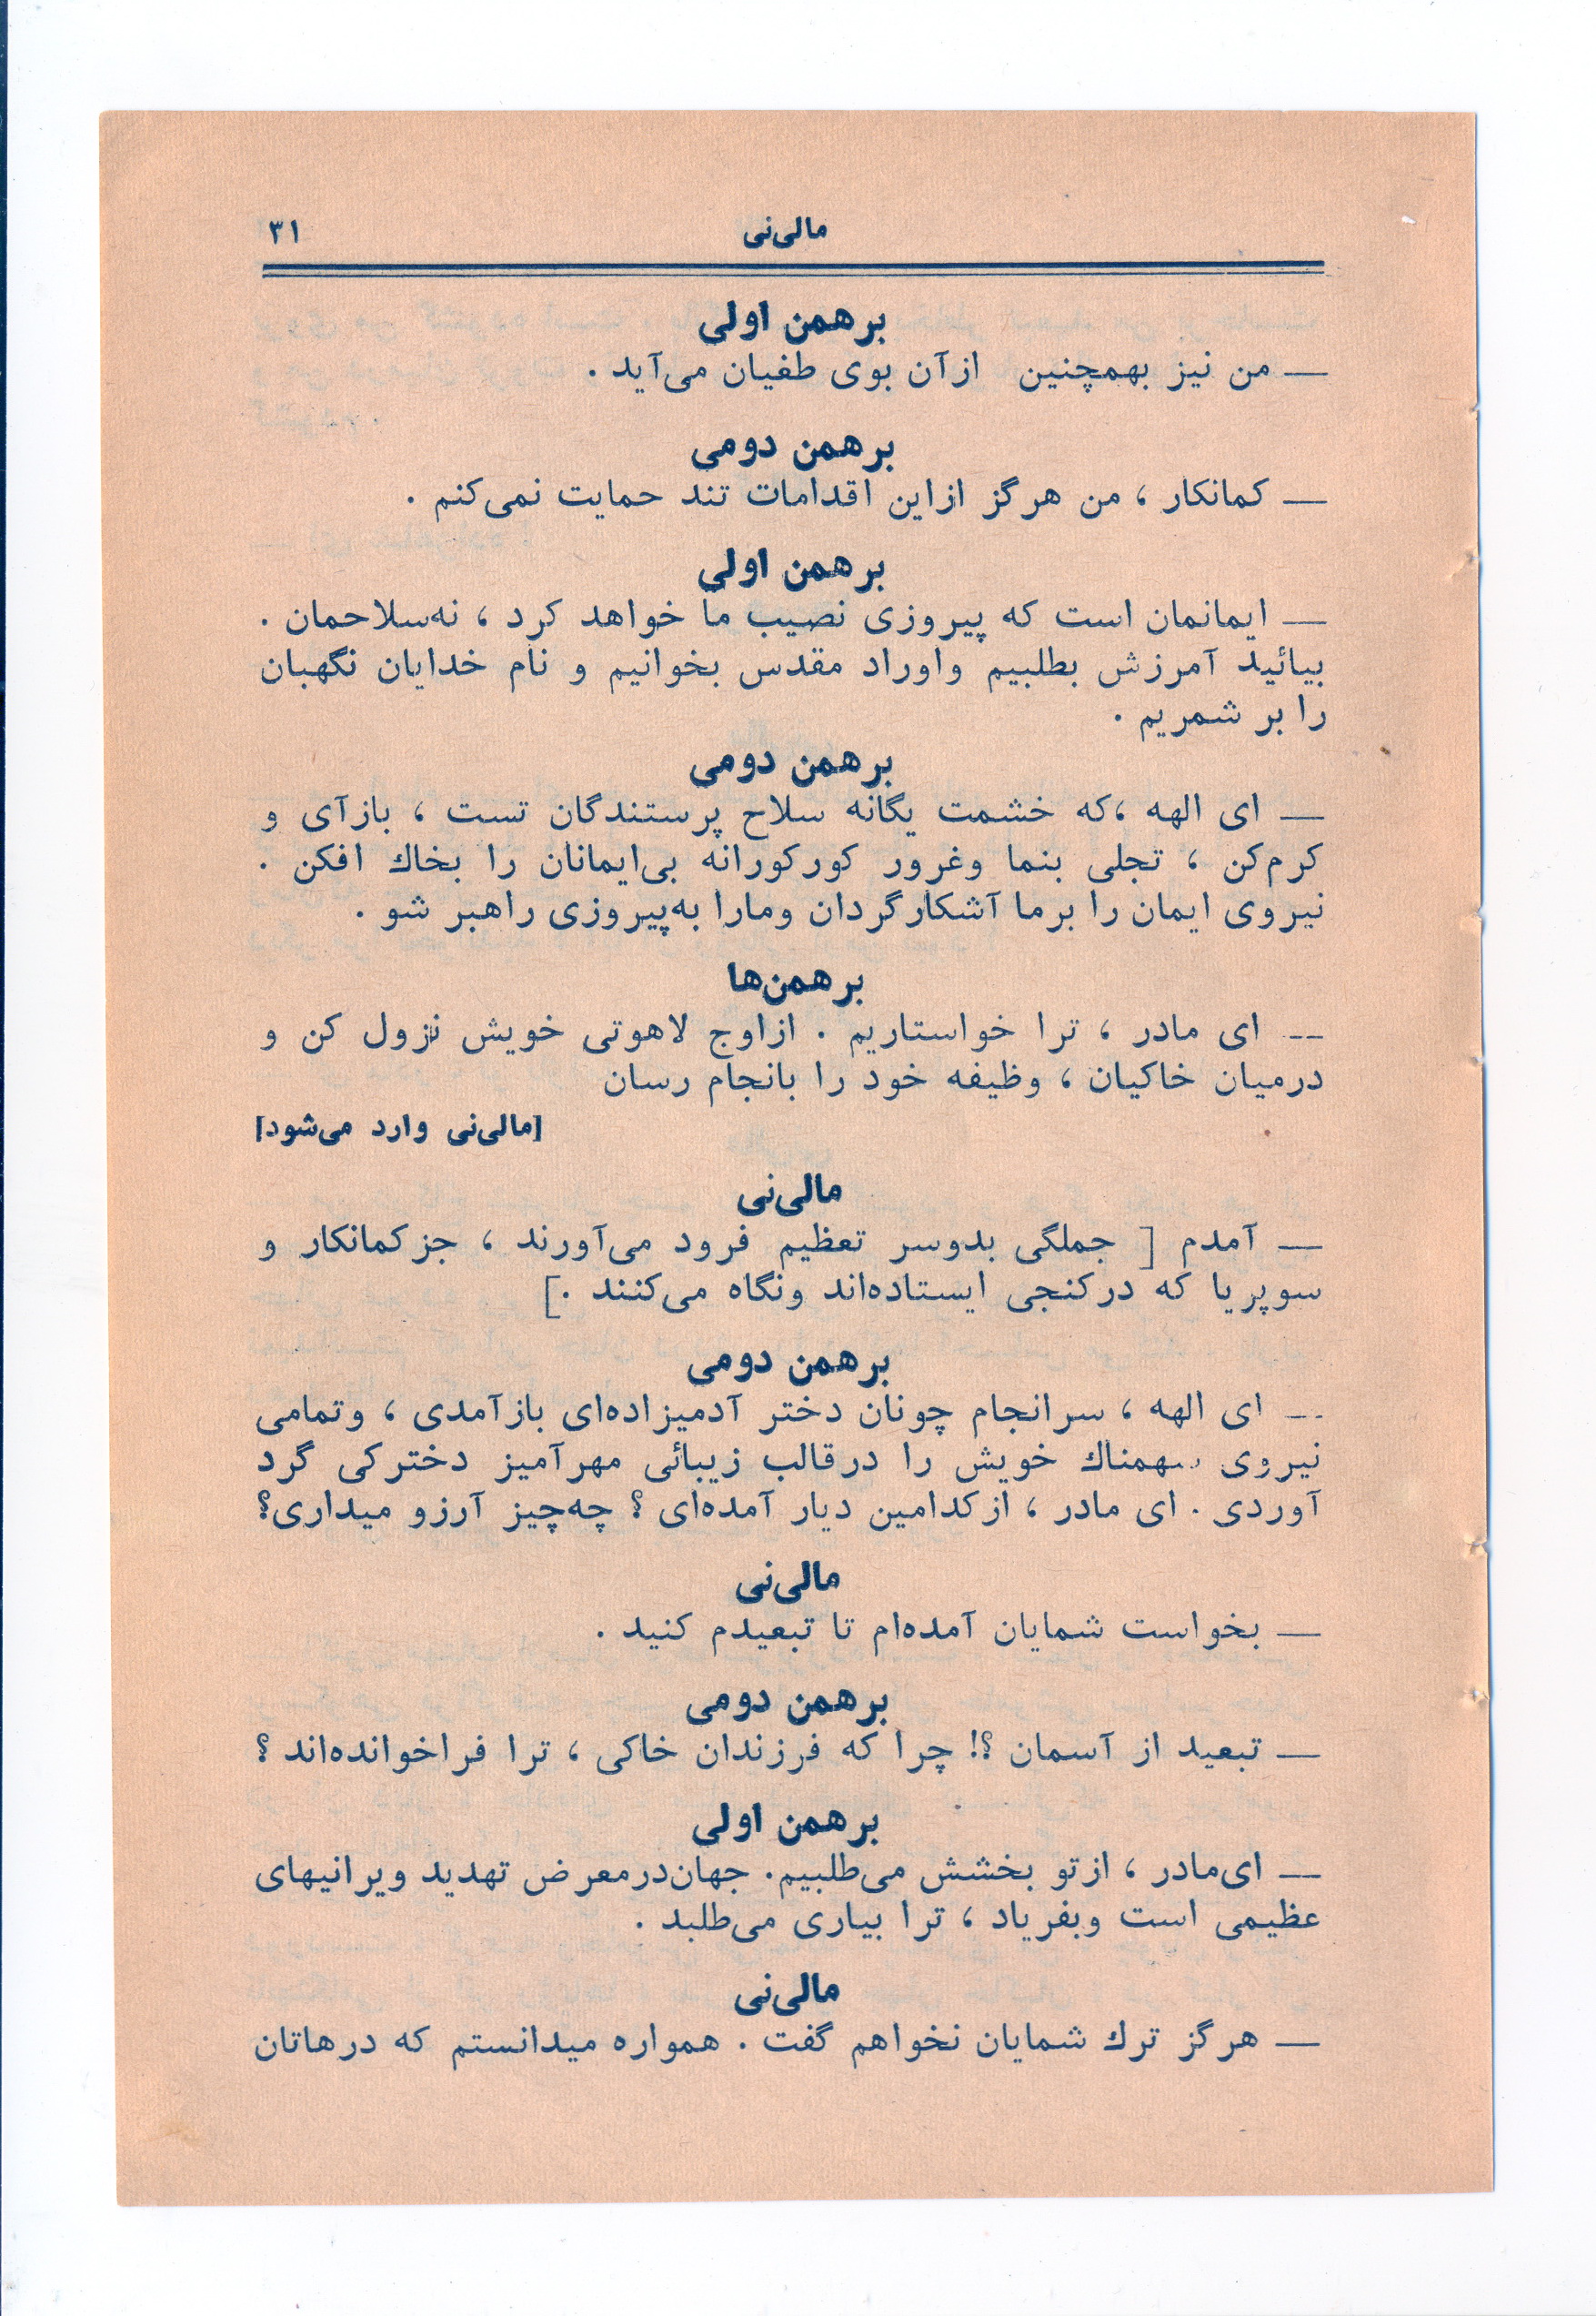 مالی‌نی ۳۱
برهمن اولی
— من نیز بهمچنین ازآن بوی طغیان می‌آید .
برهمن دومی
— کمانکار ، من هرگز ازاین اقدامات تند حمایت نمی‌کنم .
برهمن اولی
— ایمانمان است که پیروزی نصیب ما خواهد کرد ، نه‌سلاحمان .
بیائید آمرزش بطلبیم واوراد مقدس بخوانیم و نام خدایان نگهبان
را بر شمریم .
برهمن دومی
— ای الهه ،که خشمت یگانه سلاح پرستندگان تست ، بازآی و
کرم‌کن ، تجلی بنما وغرور کورکورانه بی‌ایمانان را بخاك افکن .
نیروی ایمان را برما آشکارگردان ومارا به‌پیروزی راهبر شو .
برهمن‌ها
-- ای مادر ، ترا خواستاریم . ازاوج لاهوتی خویش نزول کن و
درمیان خاکیان ، وظیفه خود را بانجام رسان
[مالی‌نی وارد می‌شود]
مالی‌نی
— آمدم [ جملگی بدوسر تعظیم فرود می‌آورند ، جزکمانکار و
سوپریا که درکنجی ایستاده‌اند ونگاه می‌کنند .]
برهمن دومی
-- ای الهه ، سرانجام چونان دختر آدمیزاده‌ای بازآمدی ، وتمامی
نیروی سهمناك خویش را درقالب زیبائی مهرآمیز دخترکی گرد
آوردی . ای مادر ، ازکدامین دیار آمده‌ای ؟ چه‌چیز آرزو میداری؟
مالی‌نی
— بخواست شمایان آمده‌ام تا تبعیدم کنید .
برهمن دومی
— تبعید از آسمان ؟! چرا که فرزندان خاکی ، ترا فراخوانده‌اند ؟
برهمن اولی
— ای‌مادر ، ازتو بخشش می‌طلبیم. جهان‌درمعرض تهدید ویرانیهای
عظیمی است وبفریاد ، ترا بیاری می‌طلبد .
مالی‌نی
— هرگز ترك شمایان نخواهم گفت . همواره میدانستم که درهاتان